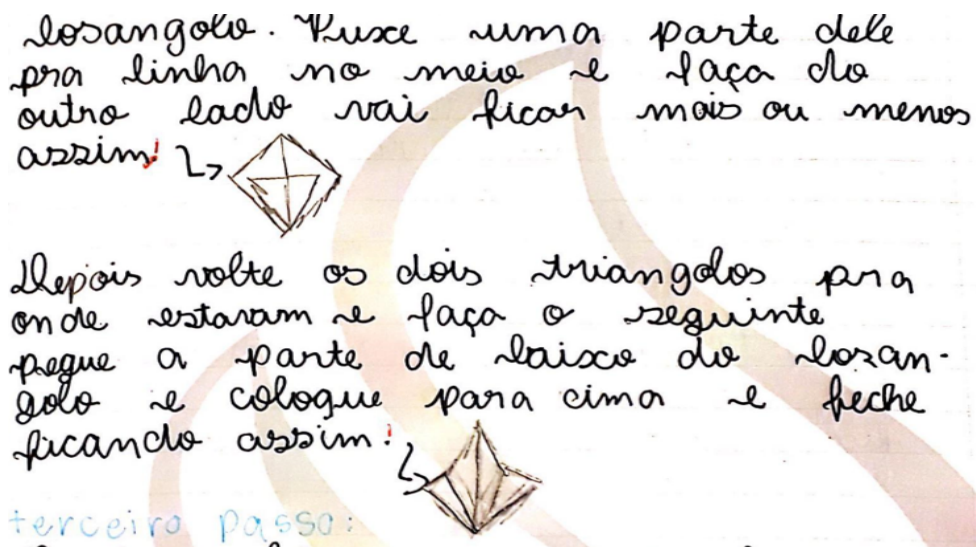 losangolo. Puxe uma parte dele
pra linha no meio e faça do
outro lado vai ficar mais ou menos
assim!
Depois volte os dois triangolos pra
onde estavam e faça o seguinte
pegue a parte de baixo do losan-
golo e coloque para cima e feche
ficando assim:
terceiro passo: